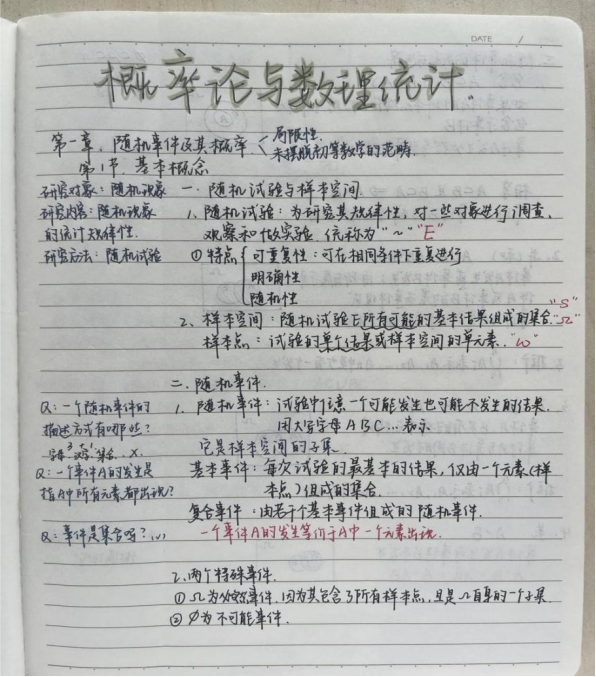 DATE /
概率论与数理统计.
第一章、随机事件及其概率 < 局限性.
未摆脱初等数学的范畴.
第1节. 基本概念
研究对象：随机现象 一、随机试验与样本空间.
研究内容：随机现象 1、随机试验：为研究其规律性，对一些对象进行调查、
的统计规律性. 观察和做实验. 统称为"~" "E"
研究方法：随机试验 ① 特点 { 可重复性：可在相同条件下重复进行
明确性
随机性
"S"
2、样本空间：随机试验E所有可能的基本结果组成的集合. "Ω"
样本点：试验的单个结果或样本空间的单元素. "ω"
二、随机事件.
Q：一个随机事件的 1. 随机事件：试验中 一个可能发生也可能不发生的结果.
描述方式有哪些？ 用大写字母ABC…表示
集合. 它是样本空间的子集.
Q：一个事件A的发生是 基本事件：每次试验的最基本的结果，仅由一个元素(样
指A中所有元素都出现？ 本点)组成的集合.
复合事件：由若干个基本事件组成的随机事件.
Q：事件是集合吗？ 一个事件A的发生等价于A中一个元素出现.
2、两个特殊事件.
① Ω为必然事件. 因为其包含了所有样本点，且是Ω自身的一个子集.
② ∅为不可能事件.